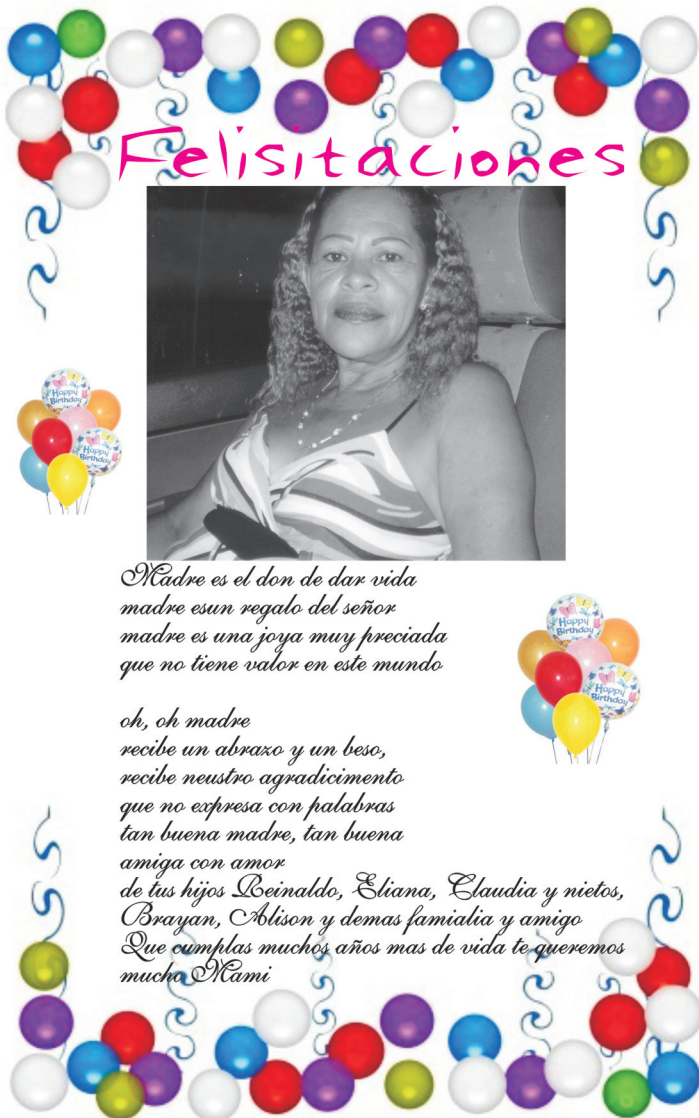 Felisitaciones
Happy
Birthday
Happy
Birthday
Madre es el don de dar vida
madre esun regalo del señor
madre es una joya muy preciada
que no tiene valor en este mundo
Happy
Birthday
Happy
Birthday
oh, oh madre
recibe un abrazo y un beso,
recibe neustro agradicimento
que no expresa con palabras
tan buena madre, tan buena
amiga con amor
de tus hijos Reinaldo, Eliana, Claudia y nietos,
Brayan, Alison y demas famialia y amigo
Que cumplas muchos años mas de vida te queremos
mucho Mami